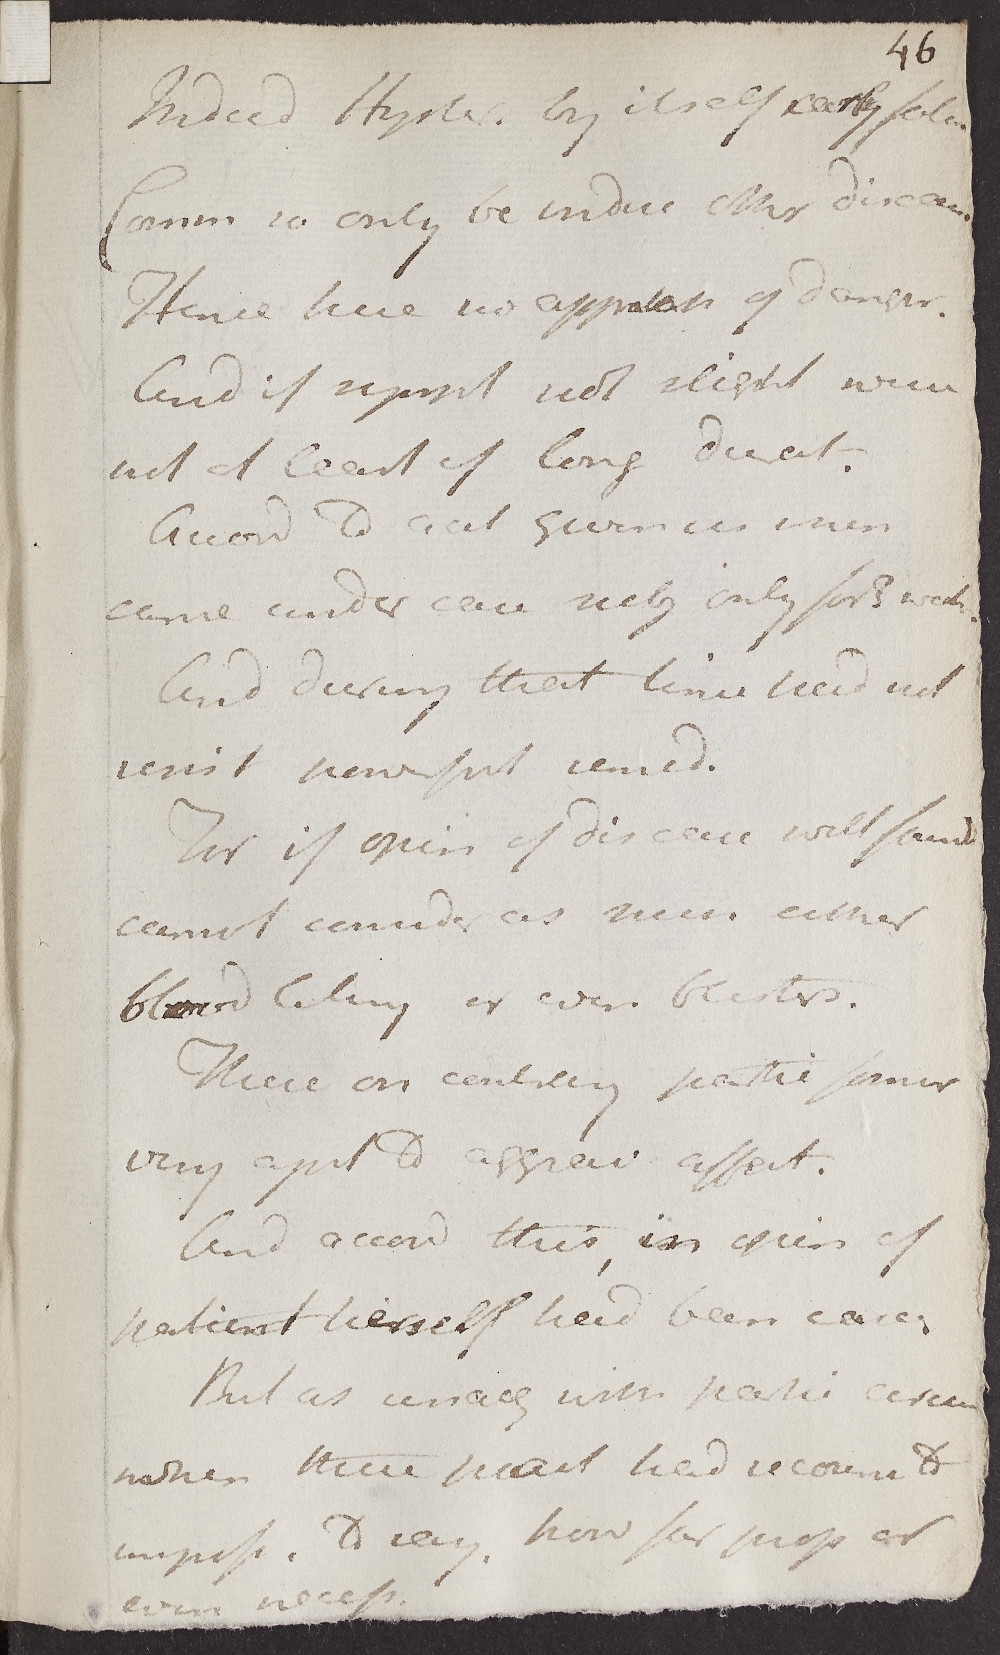 46
Indeed Hyster. by itself rarely fatal.
Comm so only be induc other diseas.
Hence here no appreh of danger.
And if sympt not slight were
not at least of long durat.
Accord to acct given us when
came under care only for 3 weeks.
And during that time had not
resist powerful remed.
For if opin of disease well found
cannot consider as such either
blood letting or even blisters.
These on contrary partic former
very apt to aggrav affect.
And accord this, in opin of
patient herself had been case,
But as unacq with partic circum
when these pract had recourse to
imposs. to say, how far prop or
even necess.